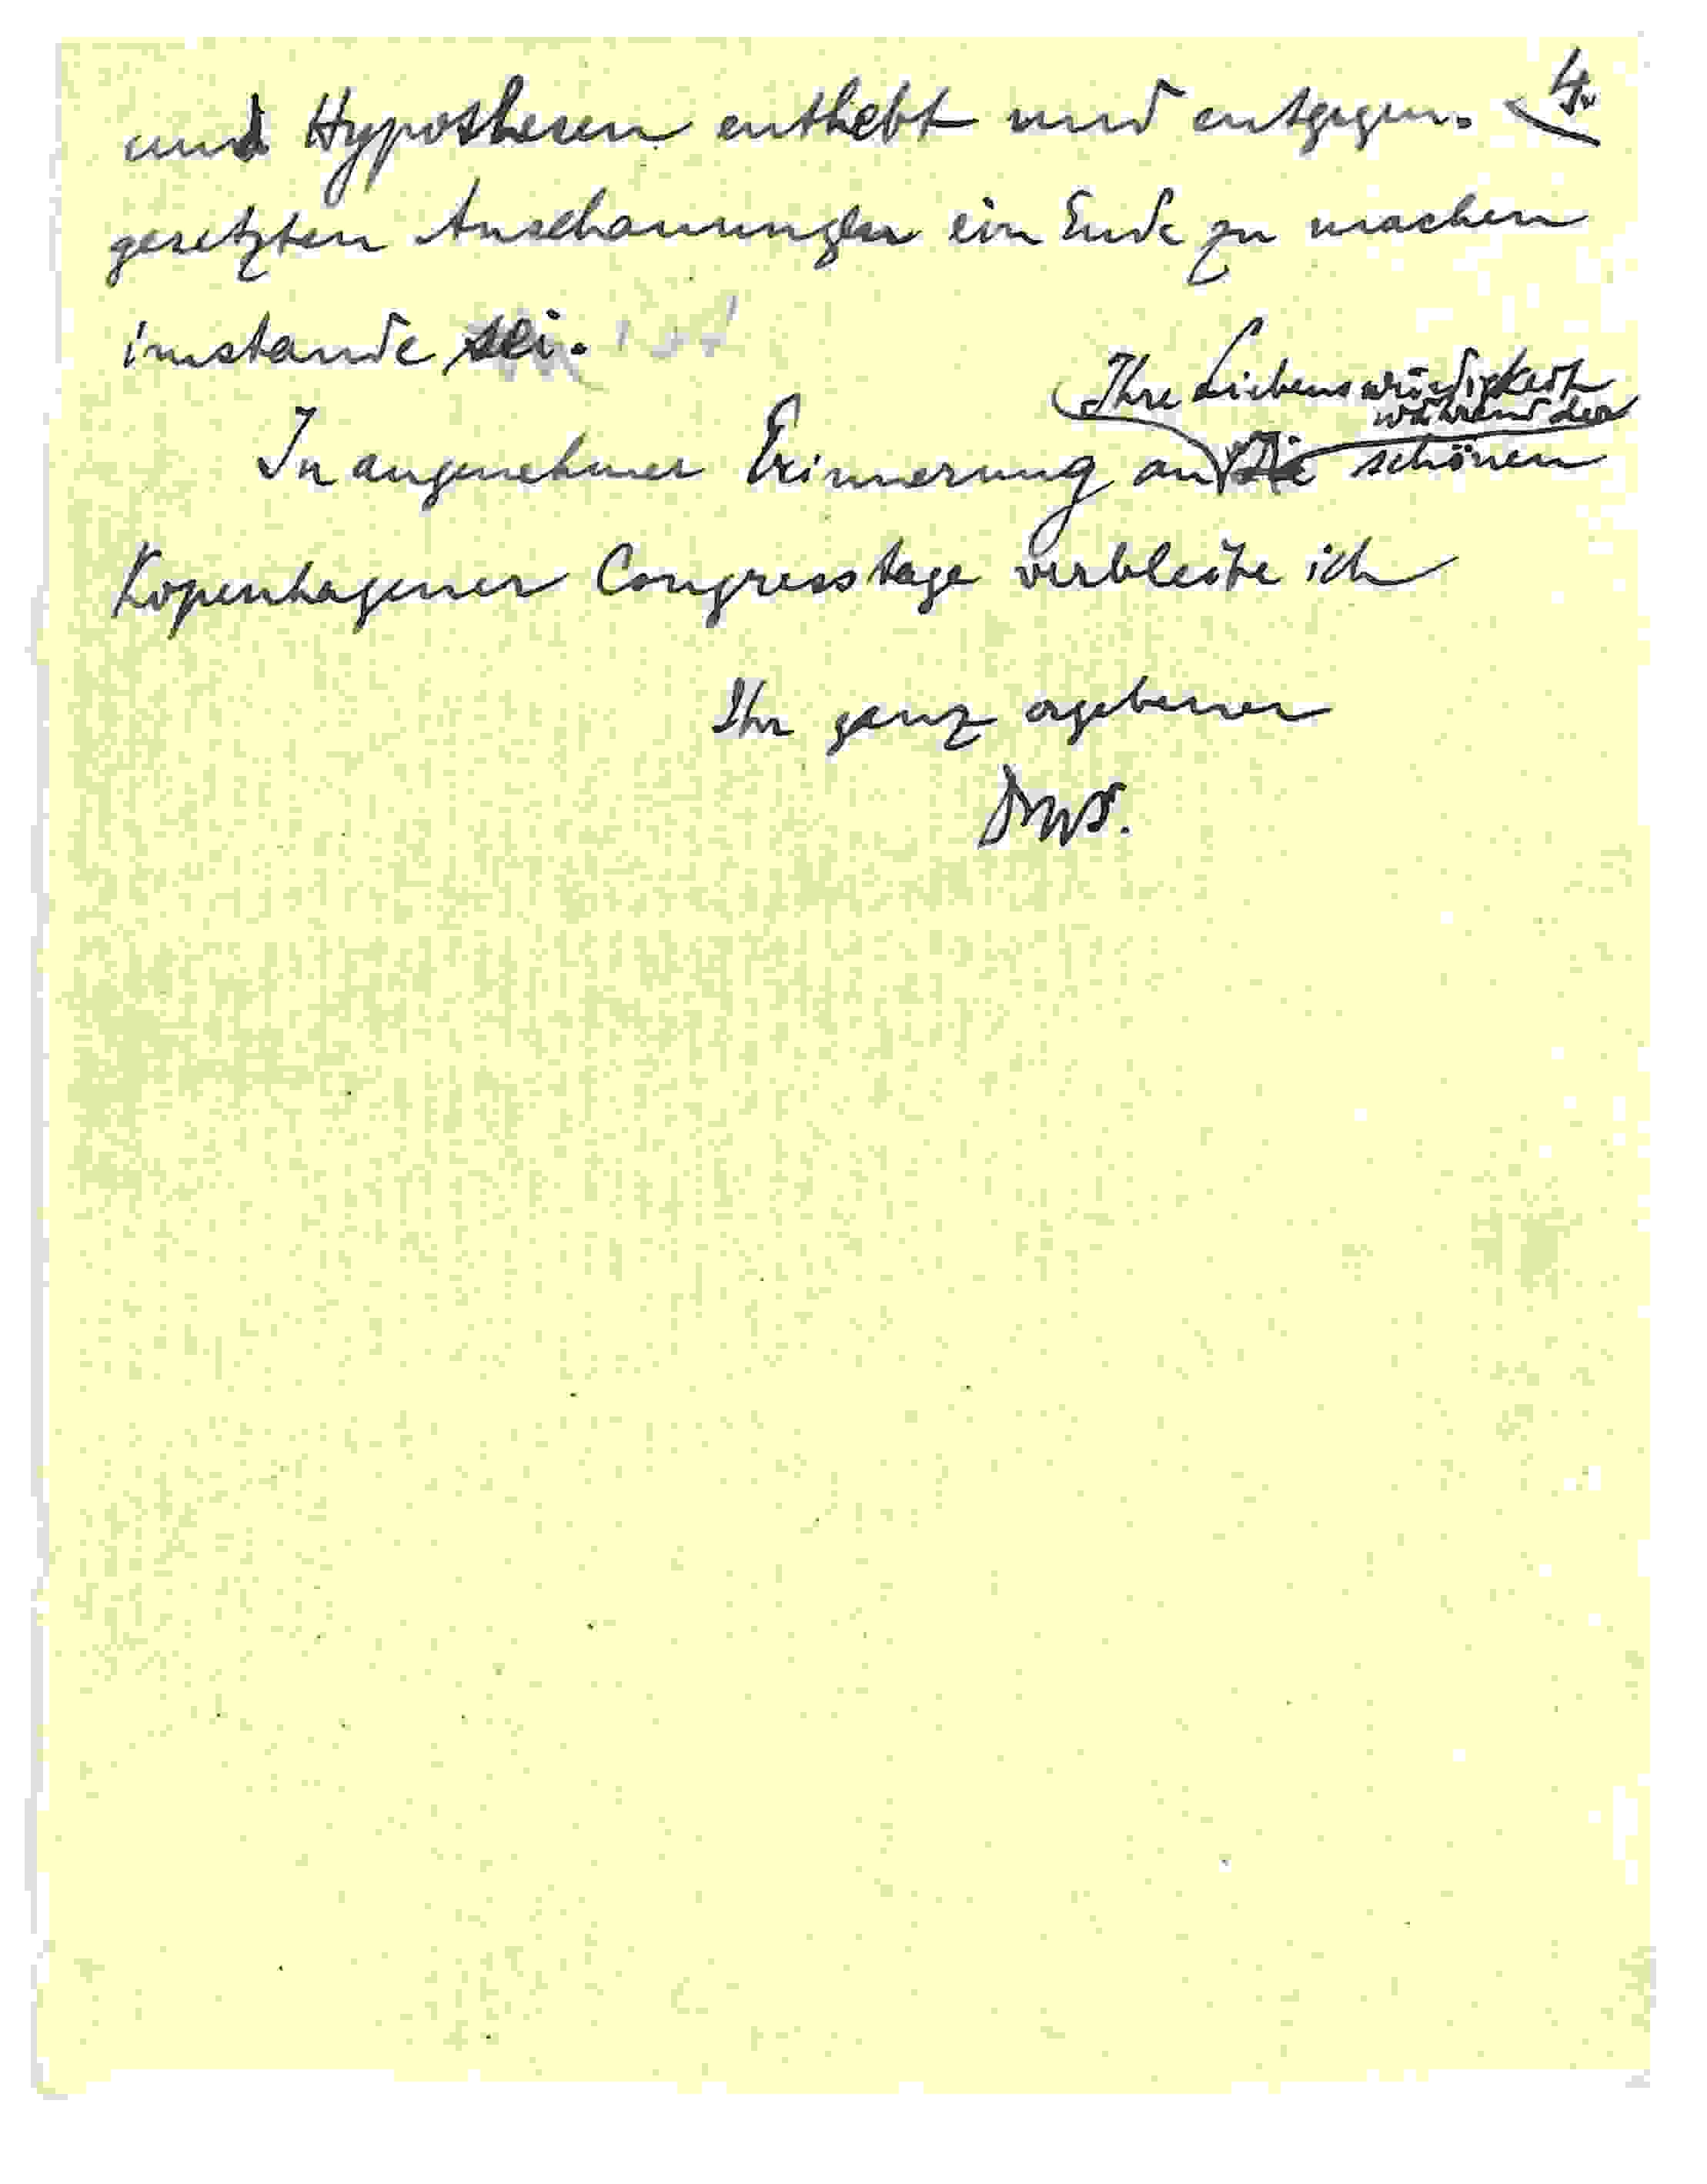 4.
und Hypothesen enthebt und entgegen-
gesetzten Anschauungen ein Ende zu machen
imstande sei. ist
Ihre Liebenswürdigkeit
während der
In angenehmer Erinnerung an die schönen
Kopenhagener Congresstage verbleibe ich
Ihr ganz ergebener